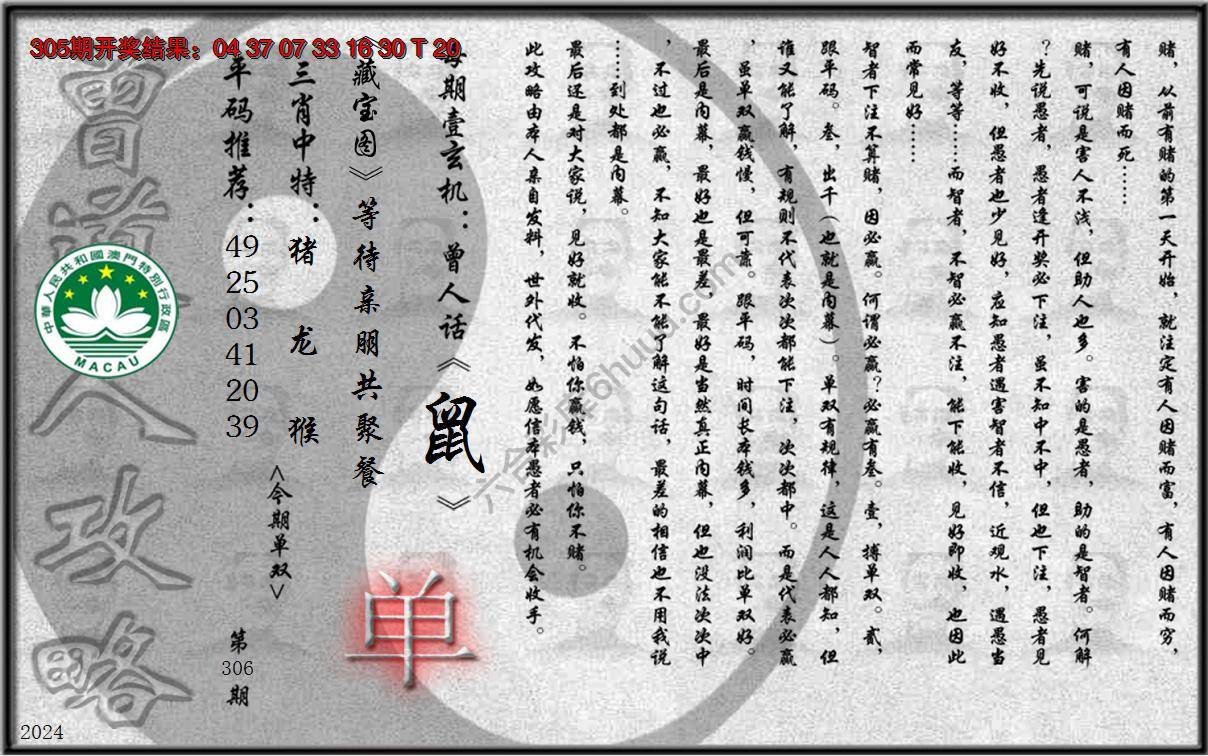 305期开奖结果：04 37 07 33 16 30 T 20
赌，从前有赌的第一天开始，就注定有人因赌而富，有人因赌而穷，
有人因赌而死……
赌，可说是害人不浅，但助人也多。害的是愚者，助的是智者。何解
？先说愚者，愚者逢开奖必下注，虽不知中不中，但也下注，愚者见
好不收，但愚者也少见好，应知愚者遇害智者不信，近观水，遇愚当
友，等等……而智者，不智必赢不注，能下能收，见好即收，也因此
而常见好……
智者下注不算赌，因必赢。何谓必赢？必赢有叁。壹，搏单双。贰，
跟平码。叁，出千（也就是内幕）。单双有规律，这是人人都知，但
谁又能了解，有规则不代表次次都能下注，次次都中。而是代表必赢
，虽单双赢钱慢，但可靠。跟平码，时间长本钱多，利润比单双好。
最后是内幕，最好也是最差，最好是当然真正内幕，但也没法次次中
，不过也必赢，不知大家能不能了解这句话，最差的相信也不用我说
……到处都是内幕。
最后还是对大家说，见好就收。不怕你赢钱，只怕你不赌。
此攻略由本人亲自发料，世外代发，如愿信本愚者必有机会收手。
每期壹玄机：曾人话《鼠》
《藏宝图》等待亲朋共聚餐
三肖中特：猪 龙 猴
<今期单双>
单
平码推荐：49 25 03 41 20 39
第306期
曾道人攻略
中華人民共和國澳門特別行政區
MACAU
2024